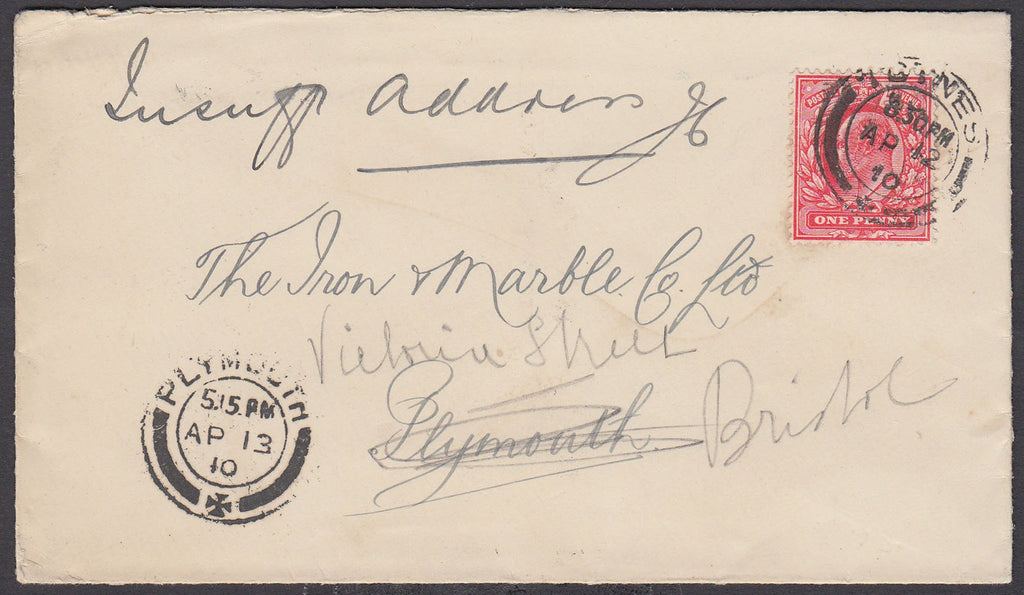 Insuff Address
POSTAGE
ONE PENNY
8.30 PM
AP 12
10
The Iron & Marble Co. Ltd
Victoria Street
Plymouth Bristol
PLYMOUTH
5.15 PM
AP 13
10